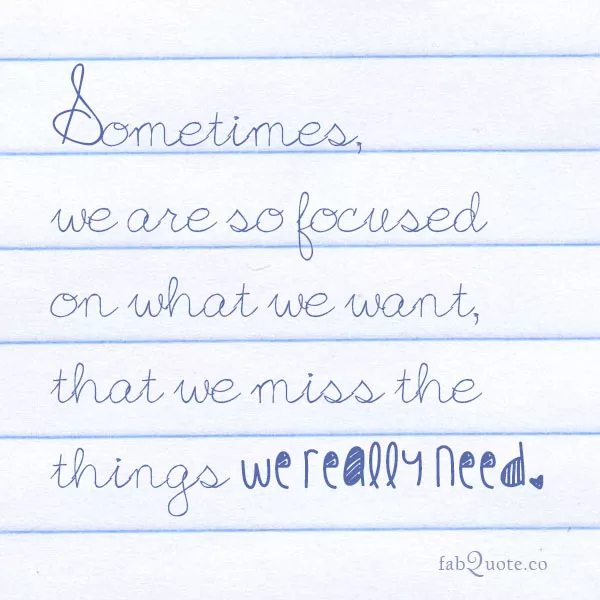 Sometimes,
we are so focused
on what we want,
that we miss the
things we really need.
fabQuote.co